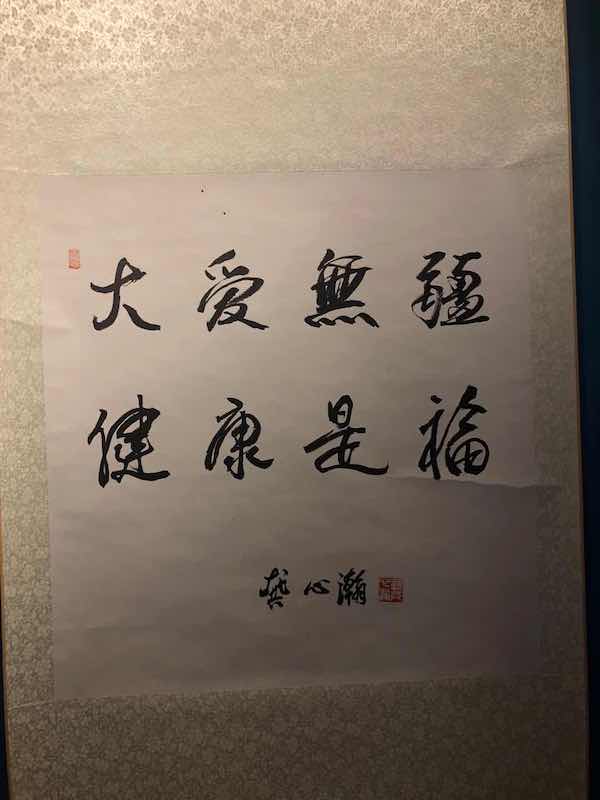 大爱無疆
健康是福
龚心瀚